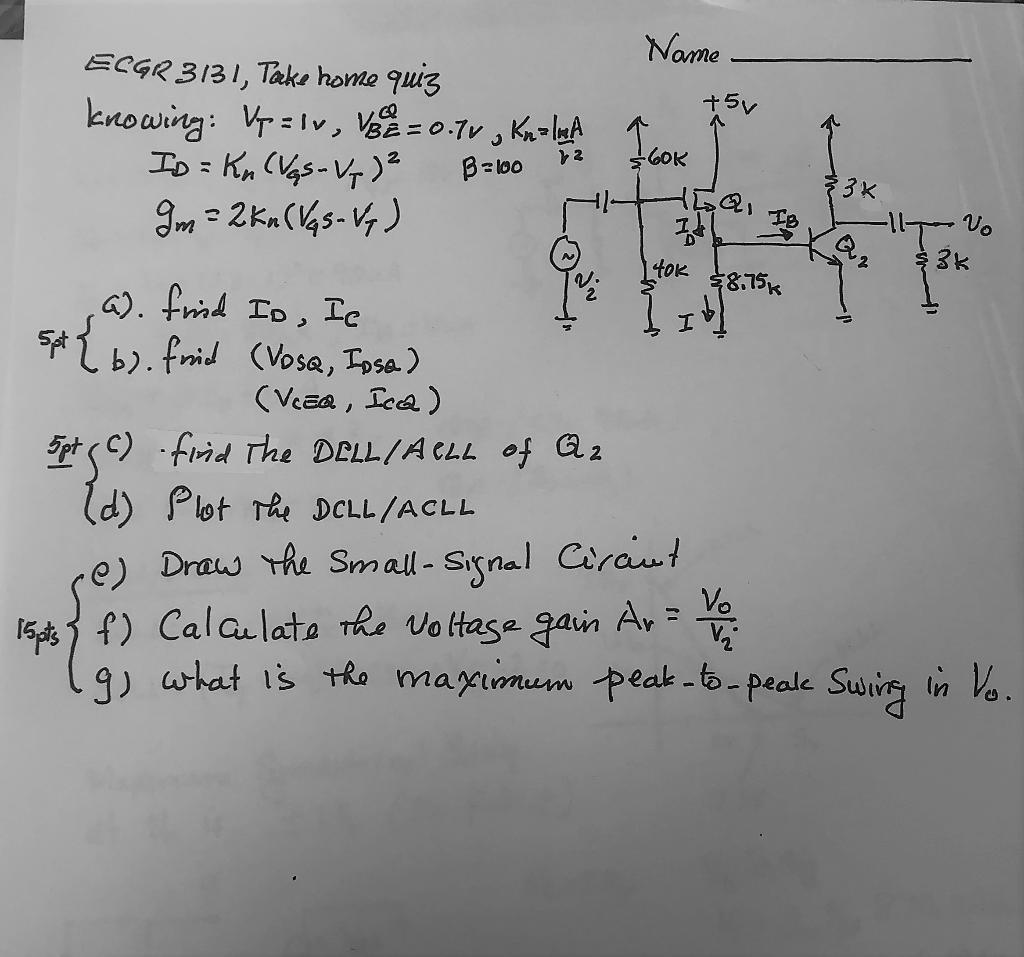 Name
ECGR 3131, Take home quiz
knowing: VT = 1v, VBE = 0.7v, Kn = 1mA/v2
Q
ID = Kn (VGS - VT)2 β=100
gm = 2Kn (VGS - VT)
+5v
60K
3K
Q1
IB
Vo
ID
Q2
3K
Vi
40K
8.75K
I
5pt
a). find ID, IC
b). find (VDSQ, IDSQ)
(VCEQ, ICQ)
5pt
c) find The DCLL/ACLL of Q2
d) Plot The DCLL/ACLL
15pts
e) Draw the Small-Signal Circuit
f) Calculate the Voltage gain Av = Vo/Vi
g) what is the maximum peak-to-peak Swing in Vo.